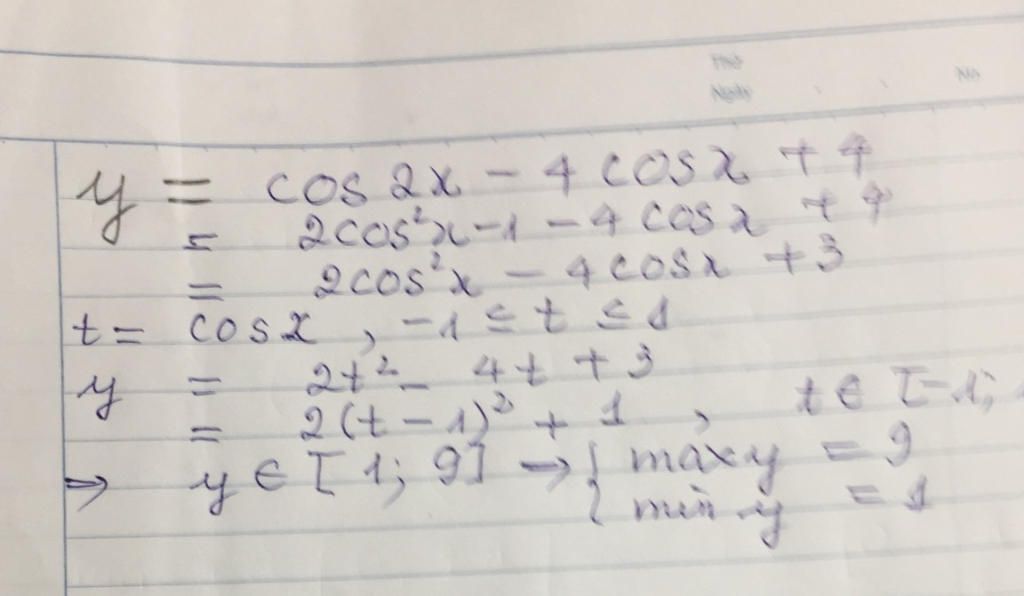 No
y = cos 2x - 4 cos x + 4
= 2cos²x - 1 - 4 cos x + 4
= 2cos²x - 4cosx + 3
t = cos x , -1 ≤ t ≤ 1
y = 2t² - 4t + 3
= 2(t - 1)² + 1 , t ∈ [-1;
⇒ y ∈ [1; 9] → { max y = 9
{ min y = 1